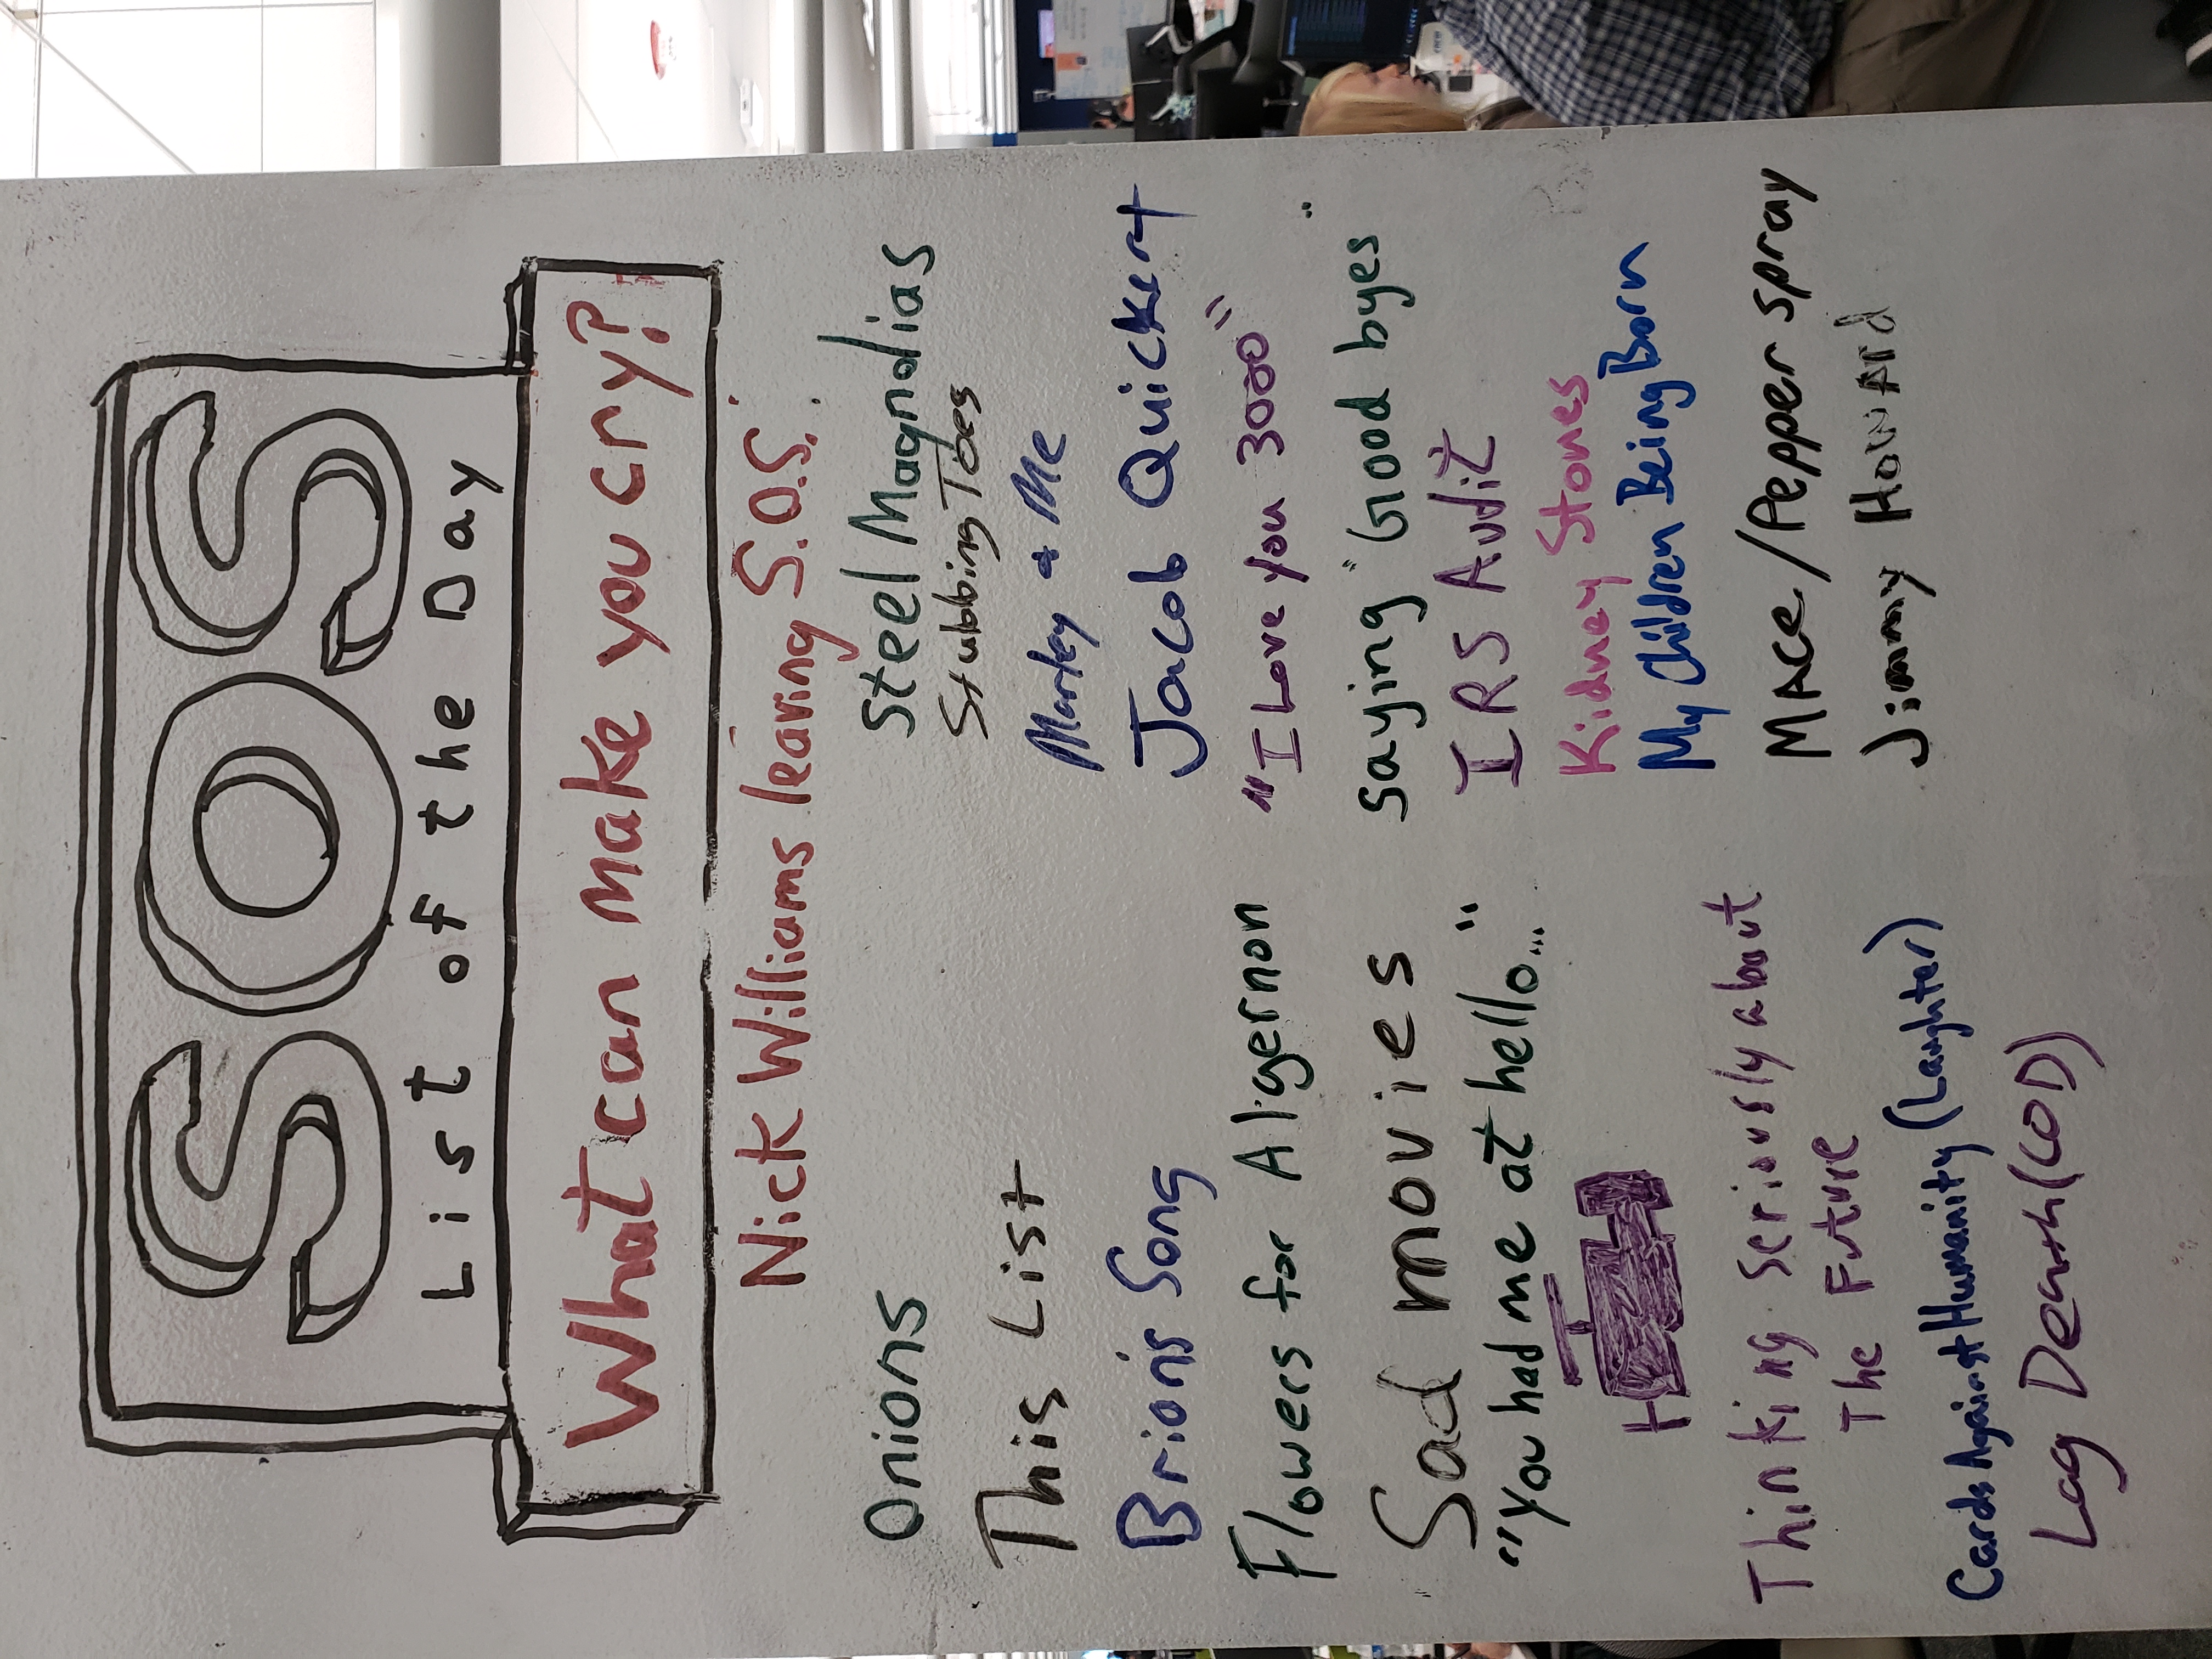 SOS
List of the Day
What can make you cry?
Nick Williams leaving S.O.S.
Onions
This List
Brion's Song
Flowers for Algernon
Sad movies
"You had me at hello..."
Thinking seriously about
The Future
Cards Against Humanity (Laughter)
Lag Death (COD)
Steel Magnolias
Stubbing Toes
Marley & Me
Jacob Quickert
"I Love you 3000"
saying "Good byes"
IRS Audit
Kidney Stones
My Children Being Born
MAce/Pepper spray
Jimmy Howard